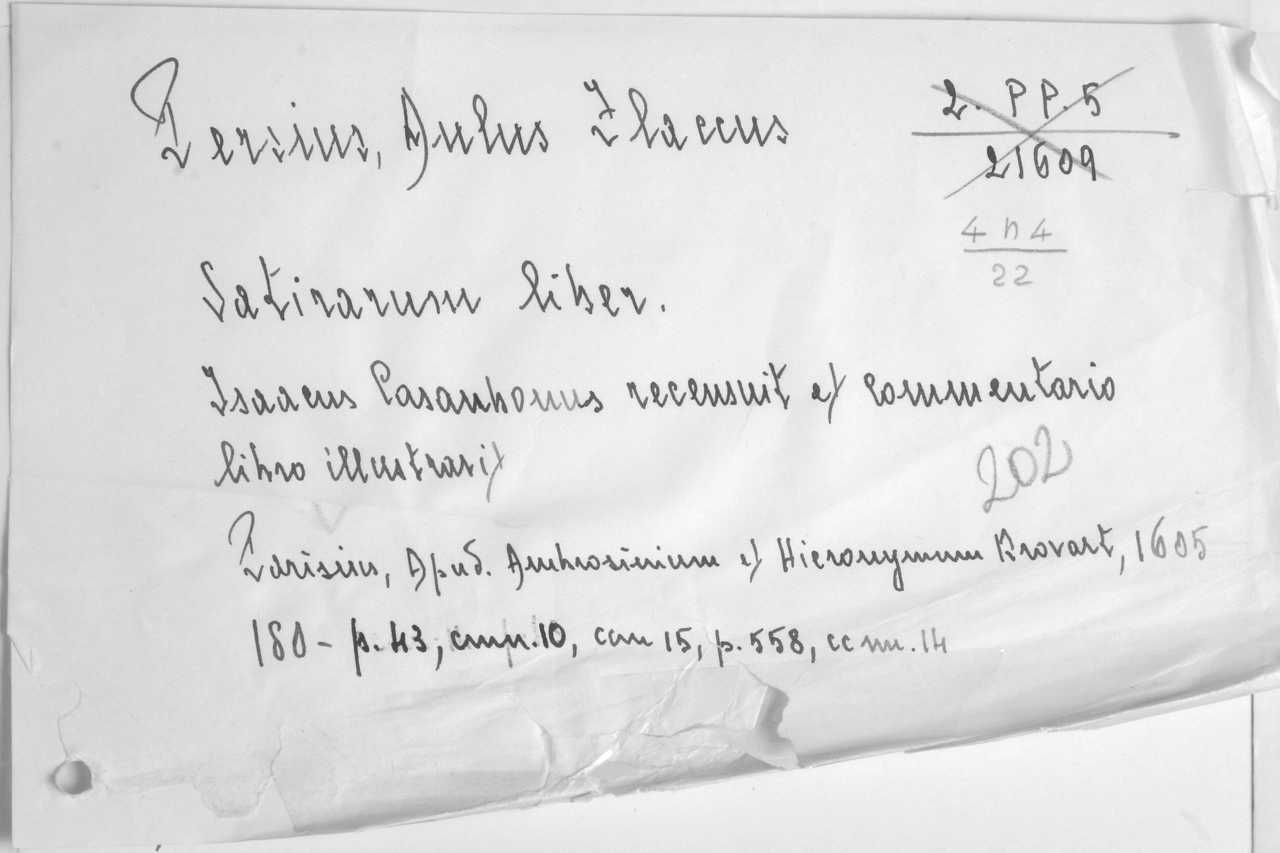 Persius, Aulus Flaccus
2. PP. 5
21609
4 n 4
22
Satirarum liber.
Isaacus Casaubonus recensuit et commentario
libro illustravit
202
Parisius, Apud. Ambrosinium et Hieronymum Drovart, 1605
180 - p. 43, cmn. 10, can 15, p. 558, cc nn. 14